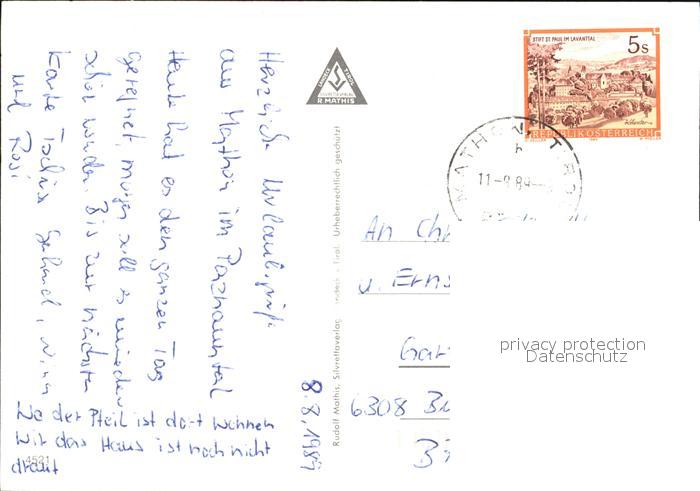 Herzliche Urlaubsgrüße
aus Mathon im Paznauntal
Heute hat es den ganzen Tag
geregnet, morgen soll es wieder
schön werden. Bis zur nächsten
Karte Tschüs Gerhard,
und Rosi
Wo der Pfeil ist dort wohnen
wir das Haus ist noch nicht
drauf
4521
8.8.1989
R.MATHIS
Rudolf Mathis, Silvrettaverlag Tirol. Urheberrechtlich geschützt
STIFT ST. PAUL IM LAVANTTAL
5s
REPUBLIK ÖSTERREICH
MATHON TIROL
11-8.89
An Ch
u. Erns
Gar
6308 Bu
privacy protection
Datenschutz